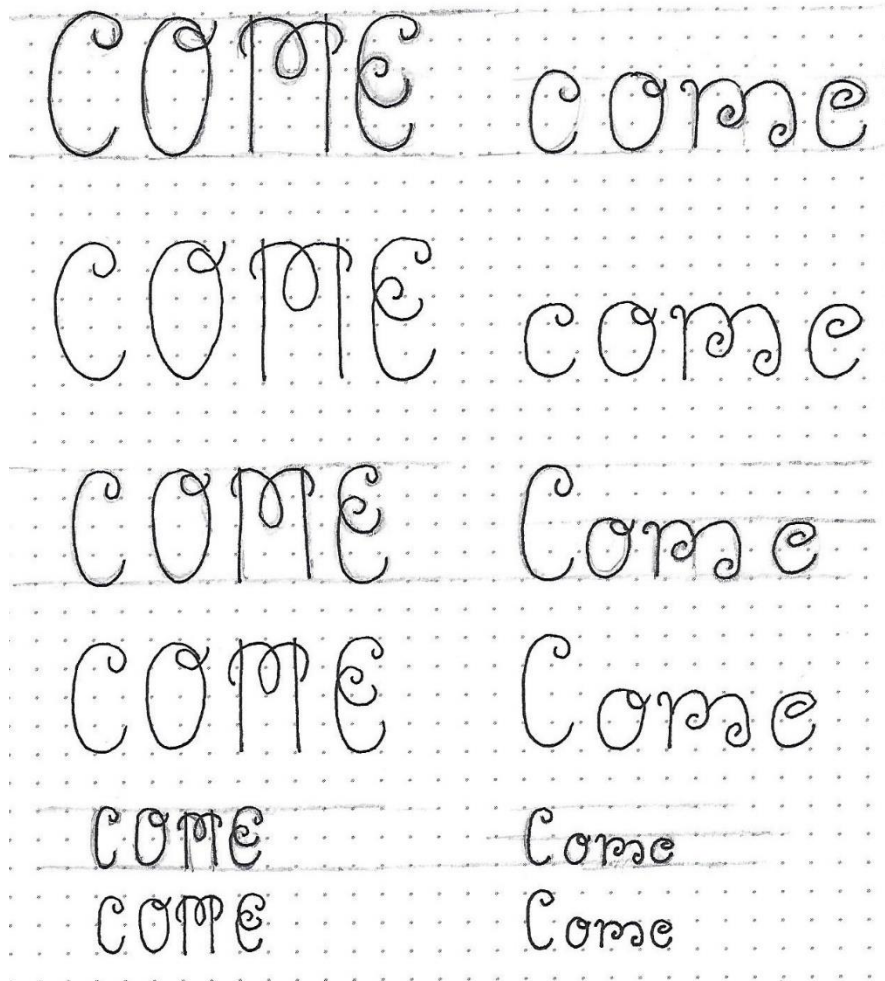 COME come
COME come
COME Come
COME Come
COME Come
COME Come